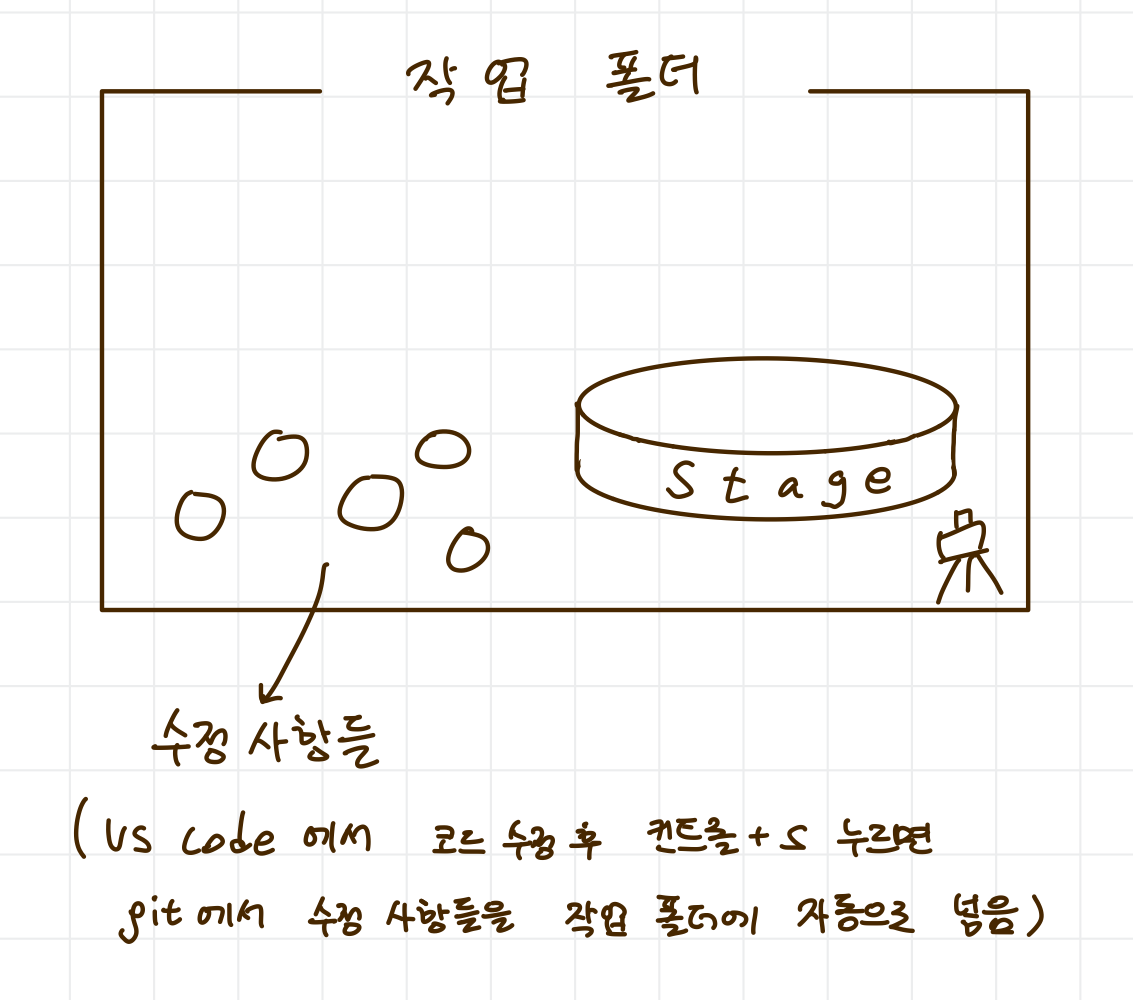 작업 폴더
Stage
수정 사항들
(VS code 에서 코드 수정 후 컨트롤 + S 누르면
git 에서 수정 사항들을 작업 폴더에 자동으로 넣음)